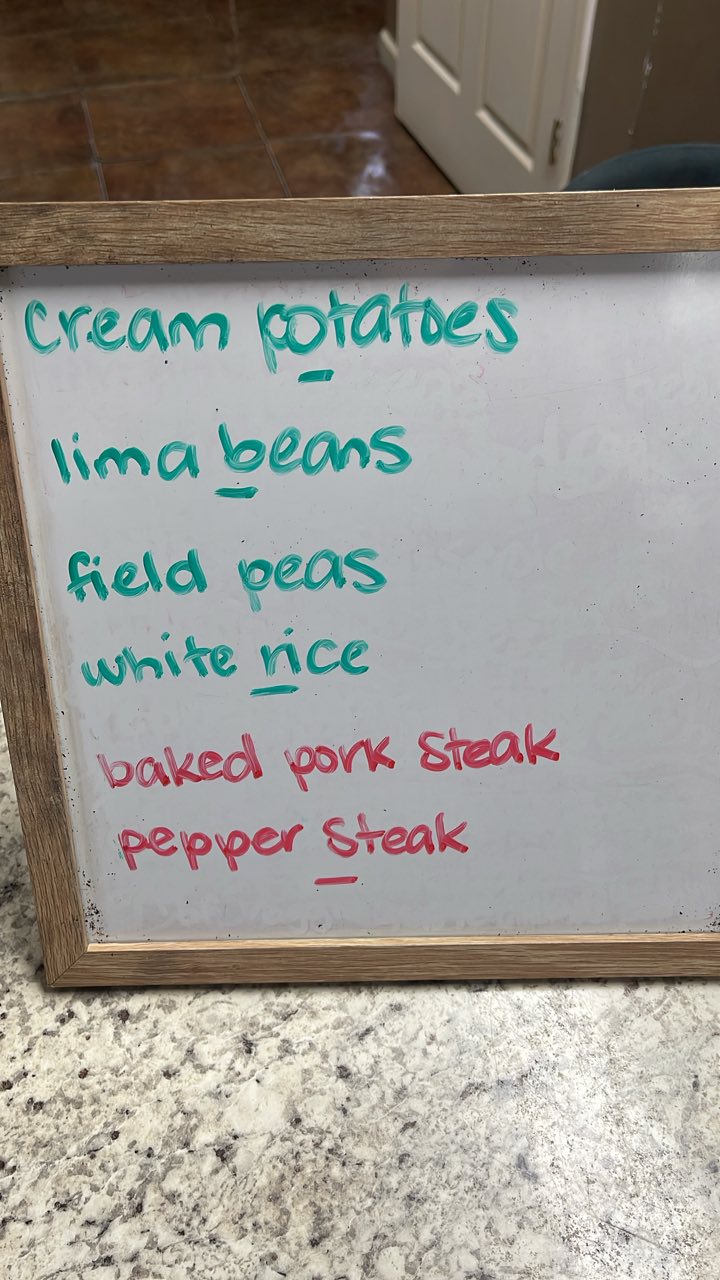 cream potatoes
lima beans
field peas
white rice
baked pork steak
pepper steak